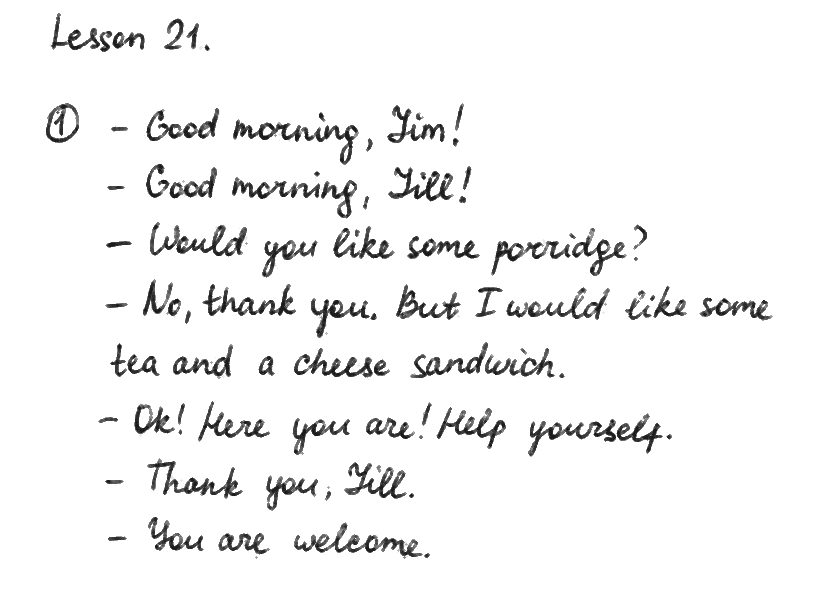 Lesson 21.
① – Good morning, Jim!
– Good morning, Jill!
– Would you like some porridge?
– No, thank you. But I would like some
tea and a cheese sandwich.
– Ok! Here you are! Help yourself.
– Thank you, Jill.
– You are welcome.